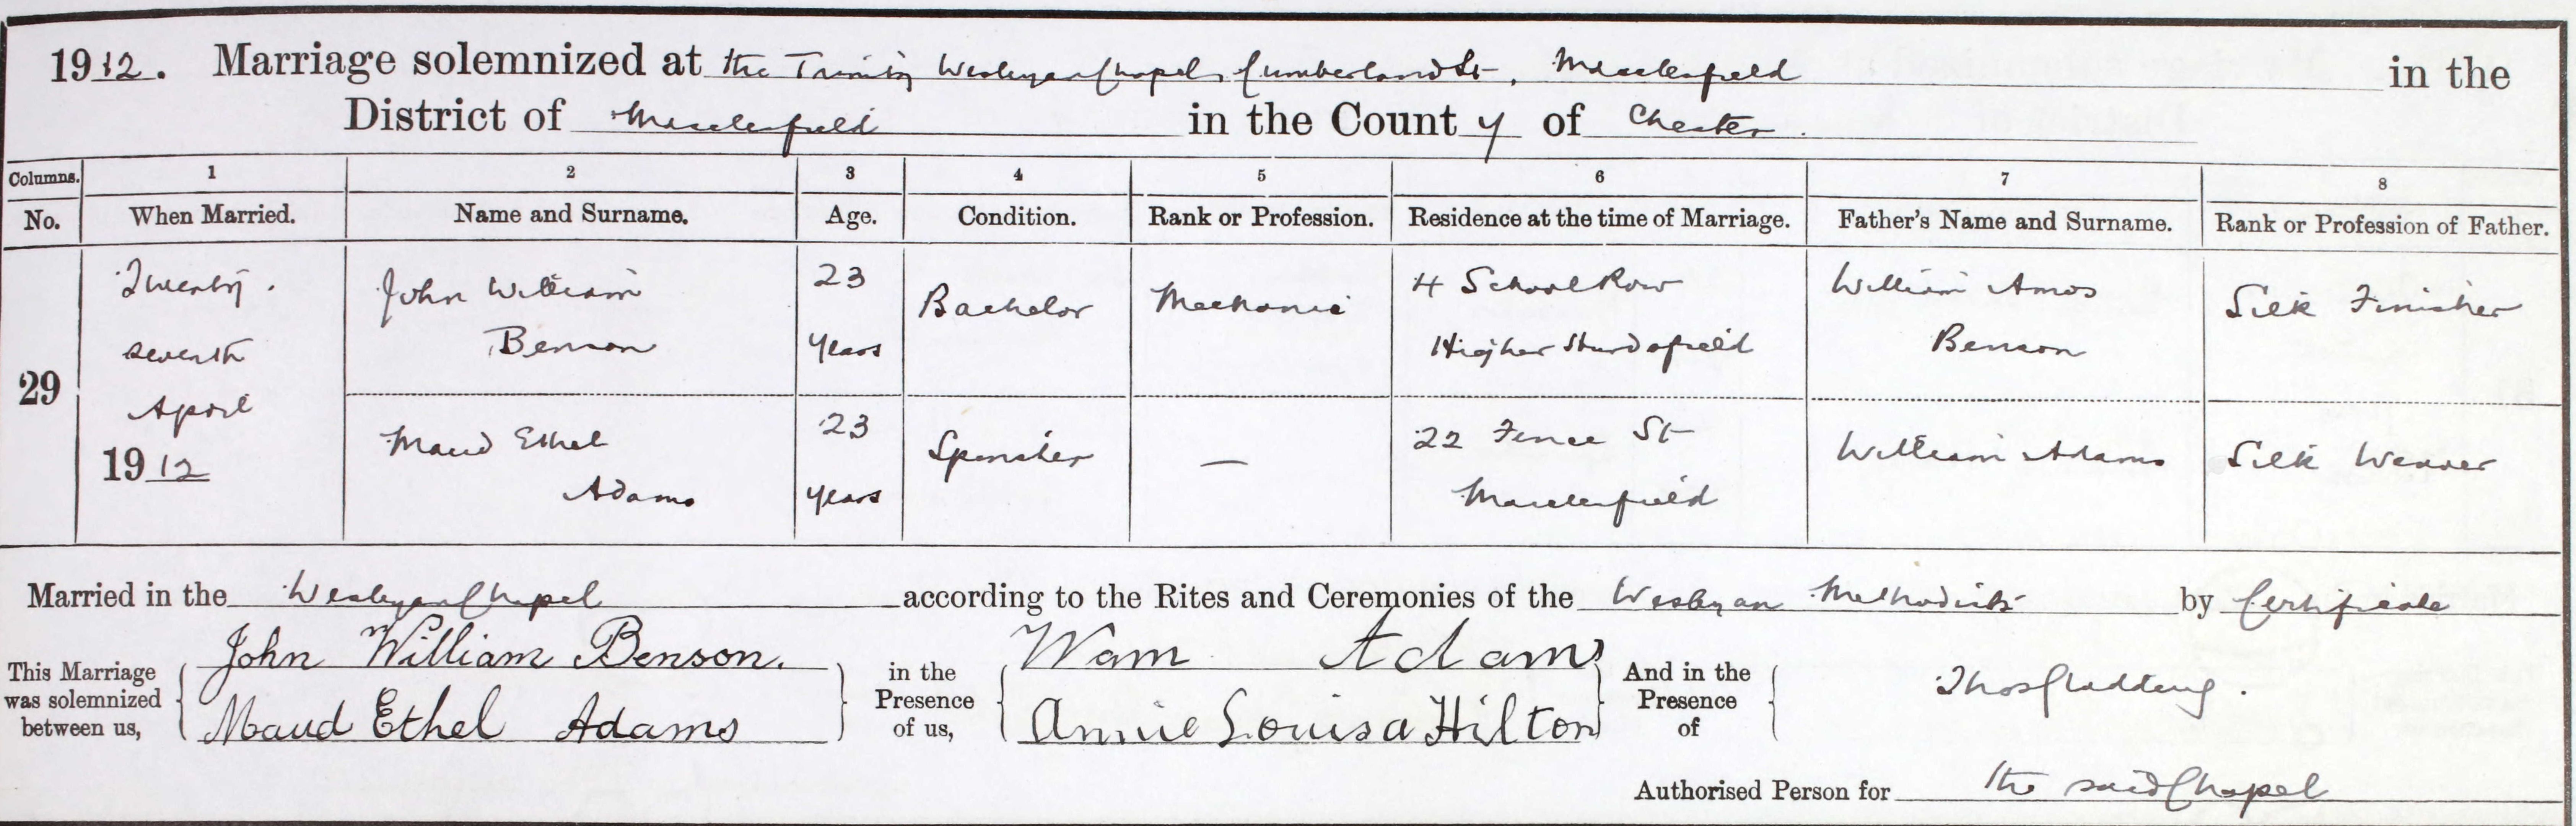 1912. Marriage solemnized at the Trinity Wesleyan Chapel, Cumberland St, Macclesfield in the
District of Macclesfield in the County of Chester.
Columns. 1 2 3 4 5 6 7 8
No. When Married. Name and Surname. Age. Condition. Rank or Profession. Residence at the time of Marriage. Father's Name and Surname. Rank or Profession of Father.
29
Twenty
seventh
April
1912
John William
Benson
23
years
Bachelor
Mechanic
4 School Row
Higher Hurdsfield
William Amos
Benson
Silk Finisher
Maud Ethel
Adams
23
years
Spinster
—
22 Fence St
Macclesfield
William Adams
Silk Weaver
Married in the Wesleyan Chapel according to the Rites and Ceremonies of the Wesleyan Methodists by Certificate
This Marriage was solemnized between us,
John William Benson.
Maud Ethel Adams
in the Presence of us,
Wam Adams
Annie Louisa Hilton
And in the Presence of
Thos
Authorised Person for the said Chapel